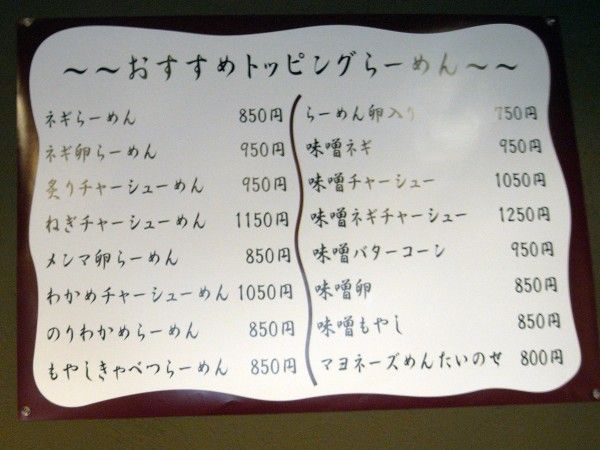 ～～おすすめトッピングらーめん～～
ネギらーめん 850円
ネギ卵らーめん 950円
炙りチャーシューめん 950円
ねぎチャーシューめん 1150円
メンマ卵らーめん 850円
わかめチャーシューめん 1050円
のりわかめらーめん 850円
もやしきゃべつらーめん 850円
らーめん卵入り 750円
味噌ネギ 950円
味噌チャーシュー 1050円
味噌ネギチャーシュー 1250円
味噌バターコーン 950円
味噌卵 850円
味噌もやし 850円
マヨネーズめんたいのせ 800円